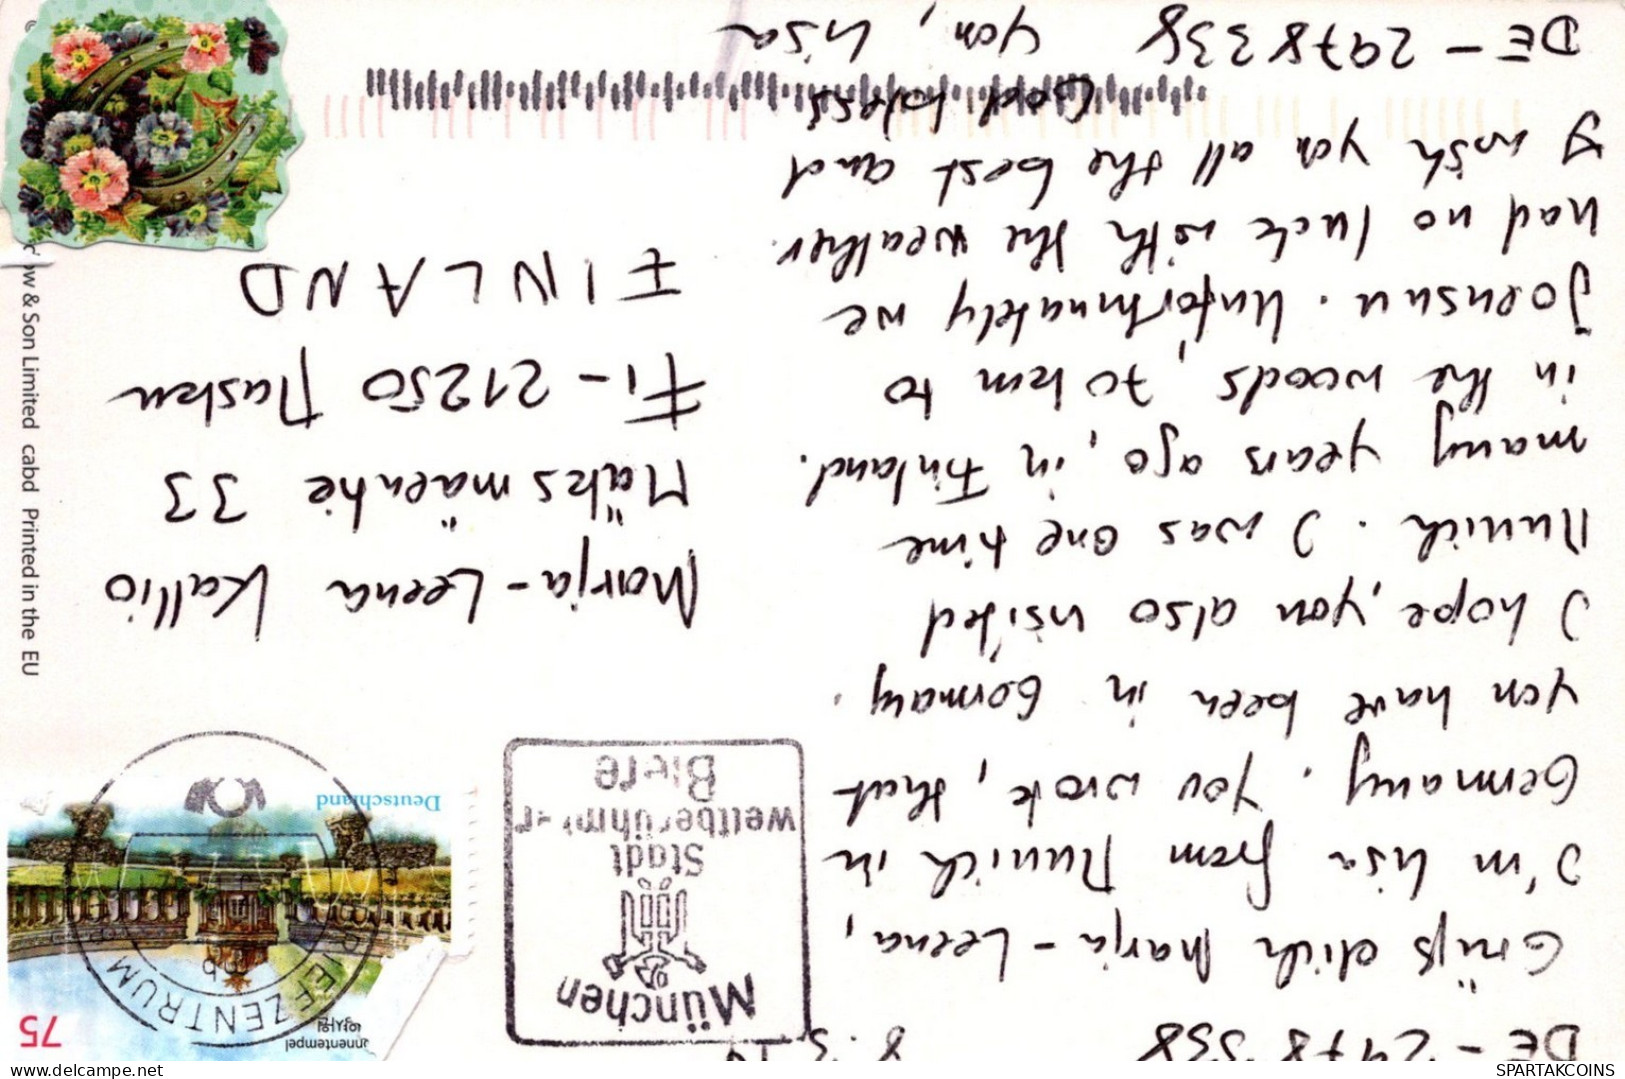 DE - 2978338
8.3.14
Grüß dich Marja-Leena,
I'm Lisa from Munich in
Germany. You wrote, that
you have been in Germany.
I hope, you also visited
Munich. I was one time
many years ago, in Finland.
in the woods, 70 km to
Joensuu. Unfortunately we
had no luck with the weather.
I wish you all the best and
God bless
you, Lisa
DE - 2978338
75
nnentempel
Deutschland
BRIEFZENTRUM
München
Stadt
weltberühmter
Biere
Marja-Leena Kallio
Mäksmäentie 33
Fi-21250 Masku
FINLAND
ow & Son Limited cabd Printed in the EU
SPARTAKCOINS